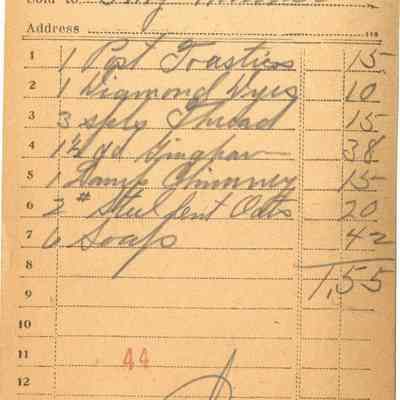 Sold to
Address
118
1 1 Post Toasties 15
2 1 Diamond Dyes 10
3 3 spls Thread 15
4 1½ yd Gingham 38
5 1 Lamp Chimney 15
6 2 # Oats 20
7 6 Soaps 42
8
9 1,55
10
11 44
12